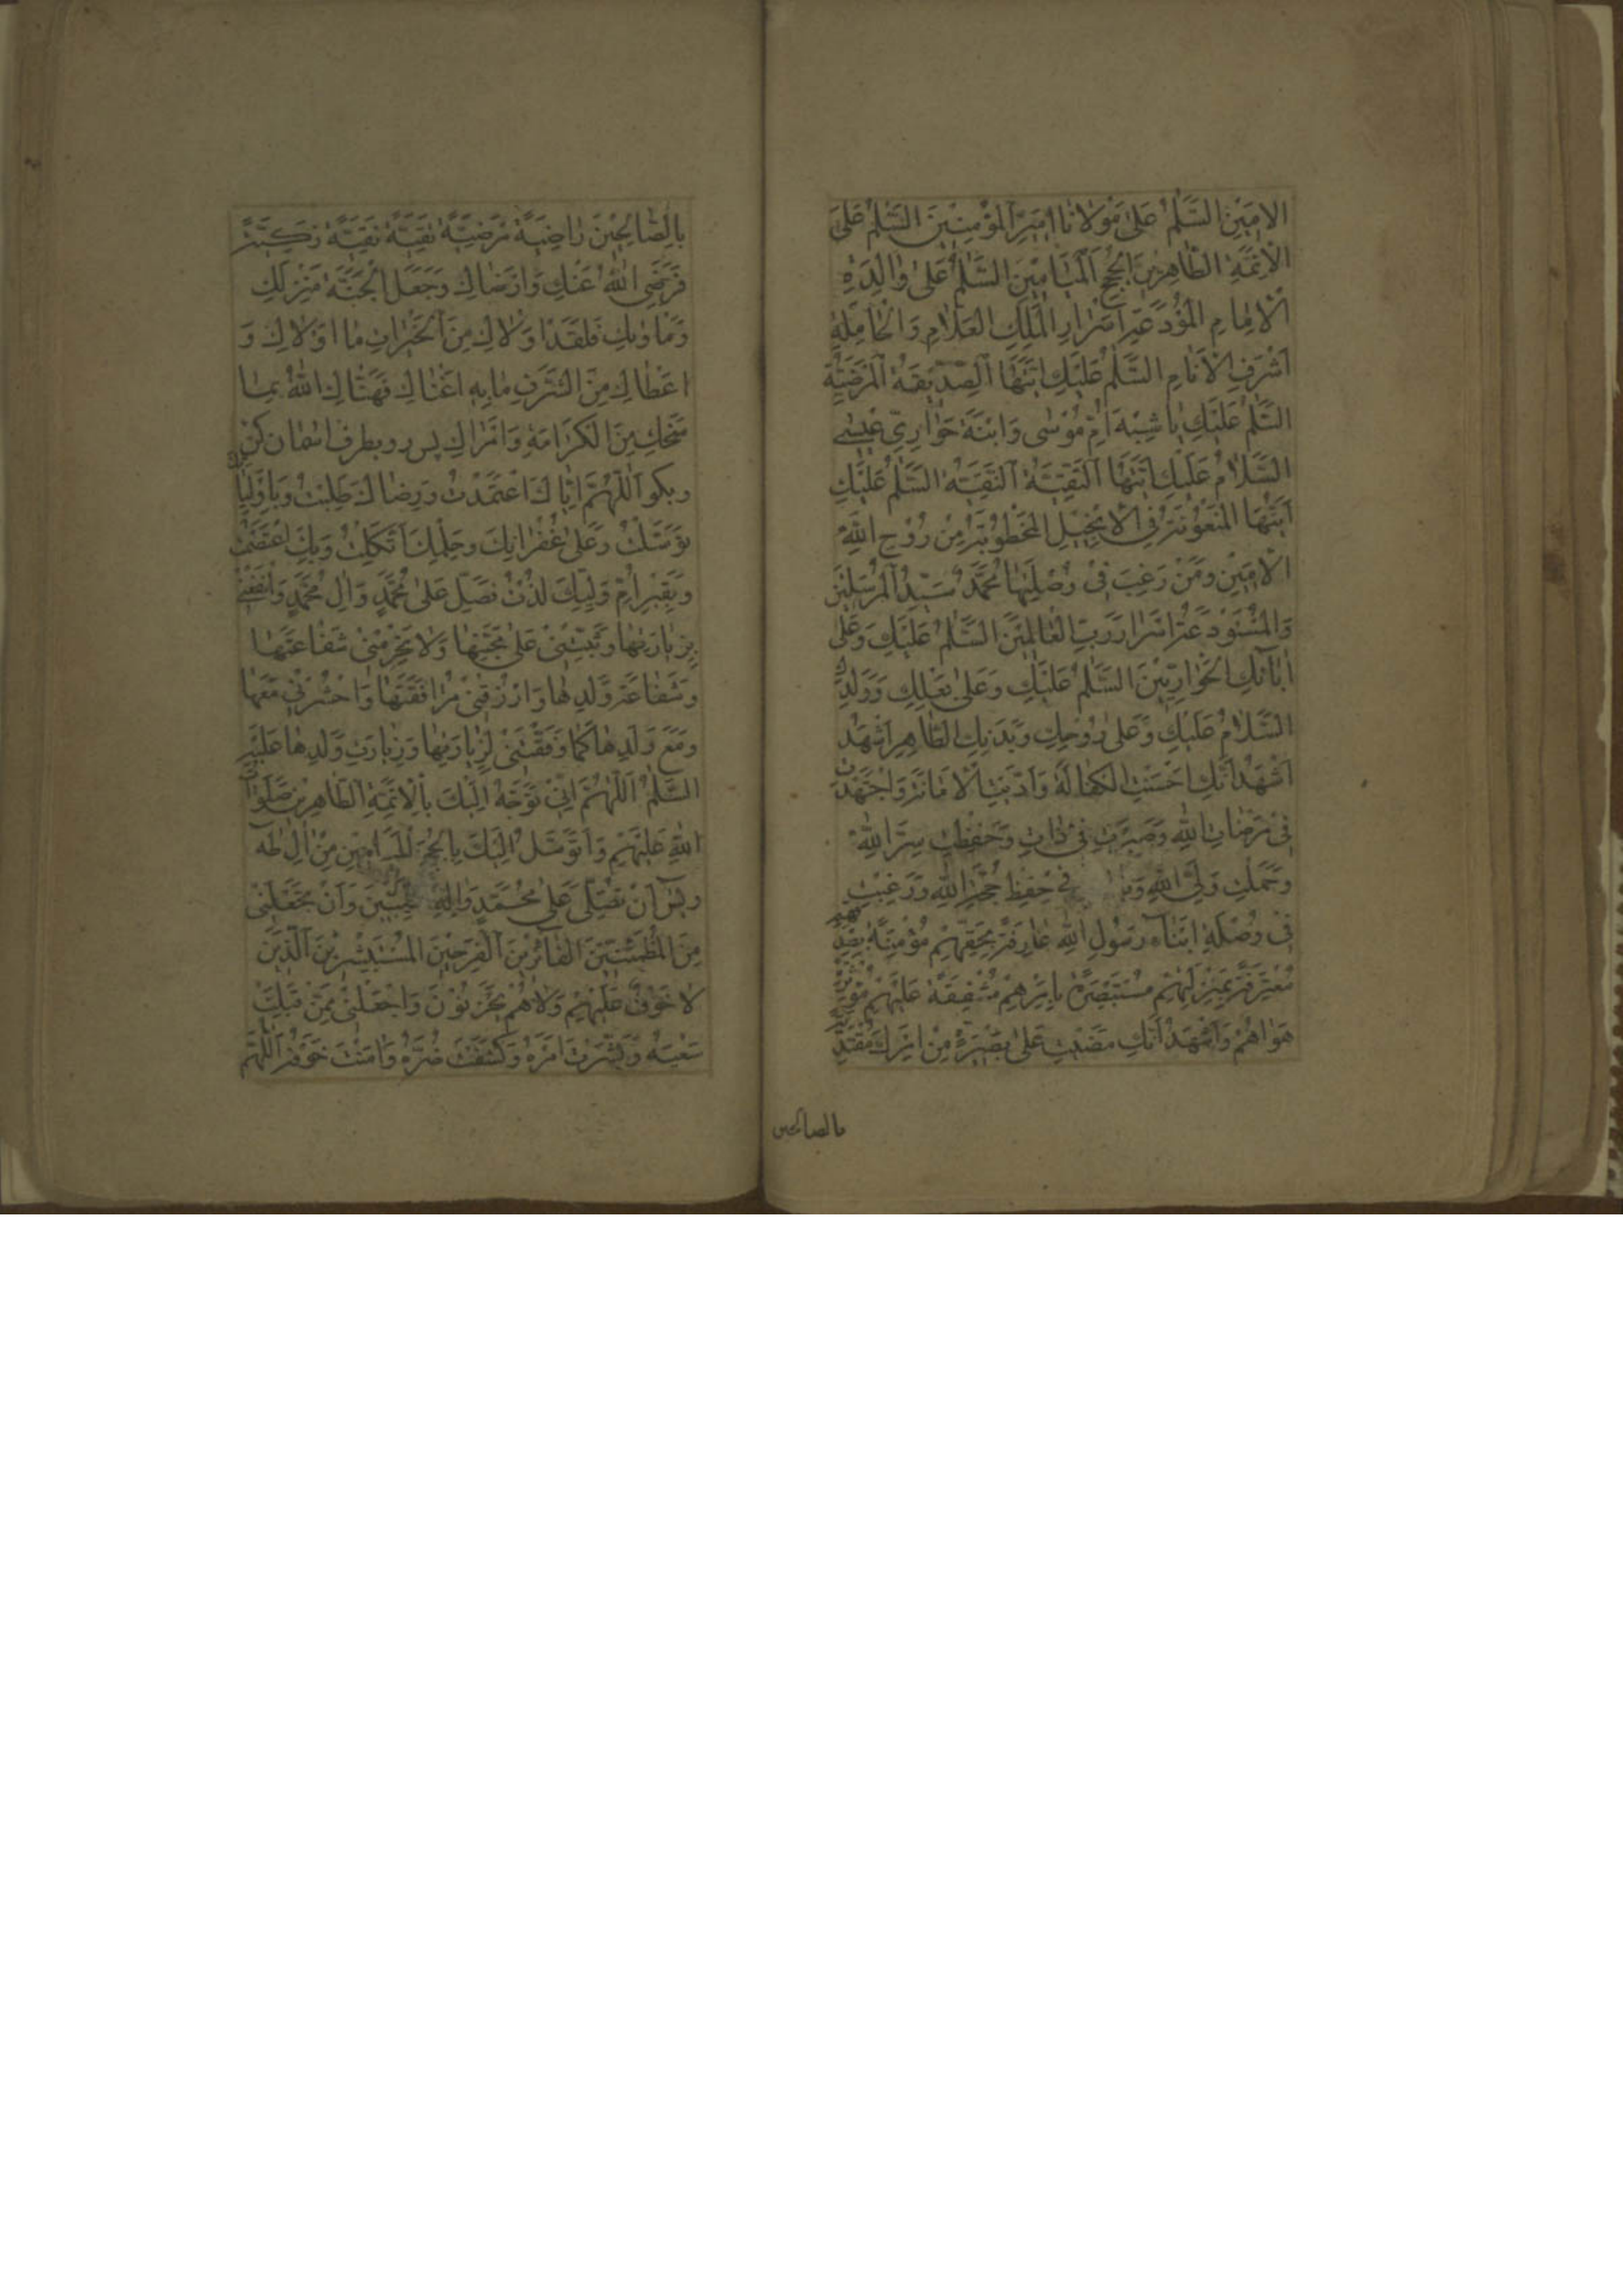 الامَبِينَ السَّلمُ عَلىٰ مَوْلانَا امَبرِ المؤمِنِينَ السَّلمُ عَلَى
الاَئِمَّةِ الطّاهِرِينَ الحُجَجِ المَيَامِينَ السَّلمُ عَلىٰ والِدَةِ
الاِمَامِ المُودَعَةِ اَسْرَارِ المَلِكِ العَلّامِ وَالحَامِلَةِ
اَشْرَفِ الاَنَامِ السَّلمُ عَلَيْكِ اَيَّتُهَا الصِّدّيقَةُ المَرْضِيَّةُ
السَّلمُ عَلَيْكِ يا شَبِيهَةَ اُمِّ مُوسٰى وَابْنَةَ حَوارِيِّ عيسٰى
السَّلامُ عَلَيْكِ اَيَّتُهَا التَّقِيَّةُ النَّقِيَّةُ السَّلمُ عَلَيْكِ
اَيَّتُهَا المَنعُوتَةُ فِى الاِنجِيلِ المَخطُوبَةُ مِن رُوحِ اللهِ
الاَمِينِ ومَنْ رَغِبَ فى وُصْلَتِها مُحَمَّدٌ سَيِّدُ المُرْسَلِينَ
وَالمُسْتَوْدَعَةُ اَسْرَارَ رَبِّ العَالَمِينَ السَّلمُ عَلَيْكِ وَعَلٰى
اٰبَائِكِ الحَوَارِيِّينَ السَّلمُ عَلَيْكِ وَعَلىٰ بَعْلِكِ وَوَلَدِكِ
السَّلامُ عَلَيْكِ وَعَلىٰ رُوحِكِ وَبَدَنِكِ الطّاهِرِ اَشْهَدُ
اَشْهَدُ اَنَّكِ اَحْسَنْتِ الكَفَالَةَ وَاَدَّيْتِ الاَمَانَةَ وَاجْتَهَدْتِ
فى مَرْضَاتِ اللهِ وَصَبَرْتِ فى ذَاتِ وَحَفِظْتِ سِرَّ اللهِ
وَحَمَلْتِ وَلِيَّ اللهِ فى حِفْظِ حُجَّةِ اللهِ وَرَغِبْتِ
فى وُصْلَةِ اَبْنَاءِ رَسُولِ اللهِ عَارِفَةً بِحَقِّهِمْ مُؤْمِنَةً بِصِدْقِهِمْ
مُعْتَرِفَةً بِمَنْزِلَتِهِمْ مُسْتَبْصِرَةً بِاَمْرِهِمْ مُشْفِقَةً عَلَيْهِمْ مُؤْثِرَةً
هَوَاهُمْ وَاَشْهَدُ اَنَّكِ مَضَيْتِ عَلىٰ بَصِيرَةٍ مِنْ اَمْرِكِ مُقْتَدِيَةً
بالصالحين
بِالصّالِحِينَ رَاضِيَةً مَرْضِيَّةً تَقِيَّةً نَقِيَّةً زَكِيَّةً
فَرَضِيَ اللهُ عَنْكِ وَاَرْضَاكِ وَجَعَلَ الجَنَّةَ مَنْزِلَكِ
وَمَأوٰيكِ فَلَقَدْ اَوْلاكِ مِنَ الخَيْرَاتِ مَا اَوْلاكِ وَ
اَعْطَاكِ مِنَ الشَّرَفِ مَا بِهِ اَغْنَاكِ فَهَنَّاكِ اللهُ بِمَا
مَنَحَكِ مِنَ الكَرَامَةِ وَاَمْرَاكِ پس رو بطرف اسمان كن
وبكو اَللّهُمَّ اِيَّاكَ اعْتَمَدْتُ وَرِضَاكَ طَلَبْتُ وَبِاَوْلِيَائِكَ
تَوَسَّلْتُ وَعَلىٰ غُفْرَانِكَ وحِلْمِكَ اتَّكَلْتُ وَبِكَ اعْتَصَمْتُ
وَبِقَبْرِ اُمِّ وَلِيِّكَ لُذْتُ فَصَلِّ عَلىٰ مُحَمَّدٍ وَاٰلِ مُحَمَّدٍ وَانْفَعْنى
بِزِيَارَتِهَا وَثَبِّتْنى عَلىٰ مَحَبَّتِهَا وَلا تَحْرِمْنى شَفَاعَتَهَا
وَشَفَاعَةَ وَلَدِهَا وَارْزُقْنى مُرَافَقَتَهَا وَاحْشُرْنى مَعَهَا
وَمَعَ وَلَدِهَا كَمَا وَفَّقْتَنى لِزِيَارَتِهَا وَزِيَارَتِ وَلَدِهَا عَلَيْهِ
السَّلمُ اَللّهُمَّ اِنّى اَتَوَجَّهُ اِلَيْكَ بِالاَئِمَّةِ الطّاهِرِينَ صَلَوَاتُ
اللهِ عَلَيْهِمْ وَاَتَوَسَّلُ اِلَيْكَ بِالحُجَجِ المَيَامِينَ مِنْ اٰلِ طٰهٰ
ويٰسٓ اَنْ تُصَلِّىَ عَلىٰ مُحَمَّدٍ وَاٰلِهِ الطَّيِّبِينَ وَاَنْ تَجْعَلَنى
مِنَ المُطْمَئِنّينَ الفَائِزِينَ الفَرِحِينَ المُسْتَبْشِرِينَ الَّذِينَ
لا خَوْفٌ عَلَيْهِمْ وَلا هُمْ يَحْزَنُوْنَ وَاجْعَلْنى مِمَّنْ قَبِلْتَ
سَعْيَهُ وَيَسَّرْتَ اَمْرَهُ وَكَشَفْتَ ضُرَّهُ وَاٰمَنْتَ خَوْفَهُ اَللّهُمَّ